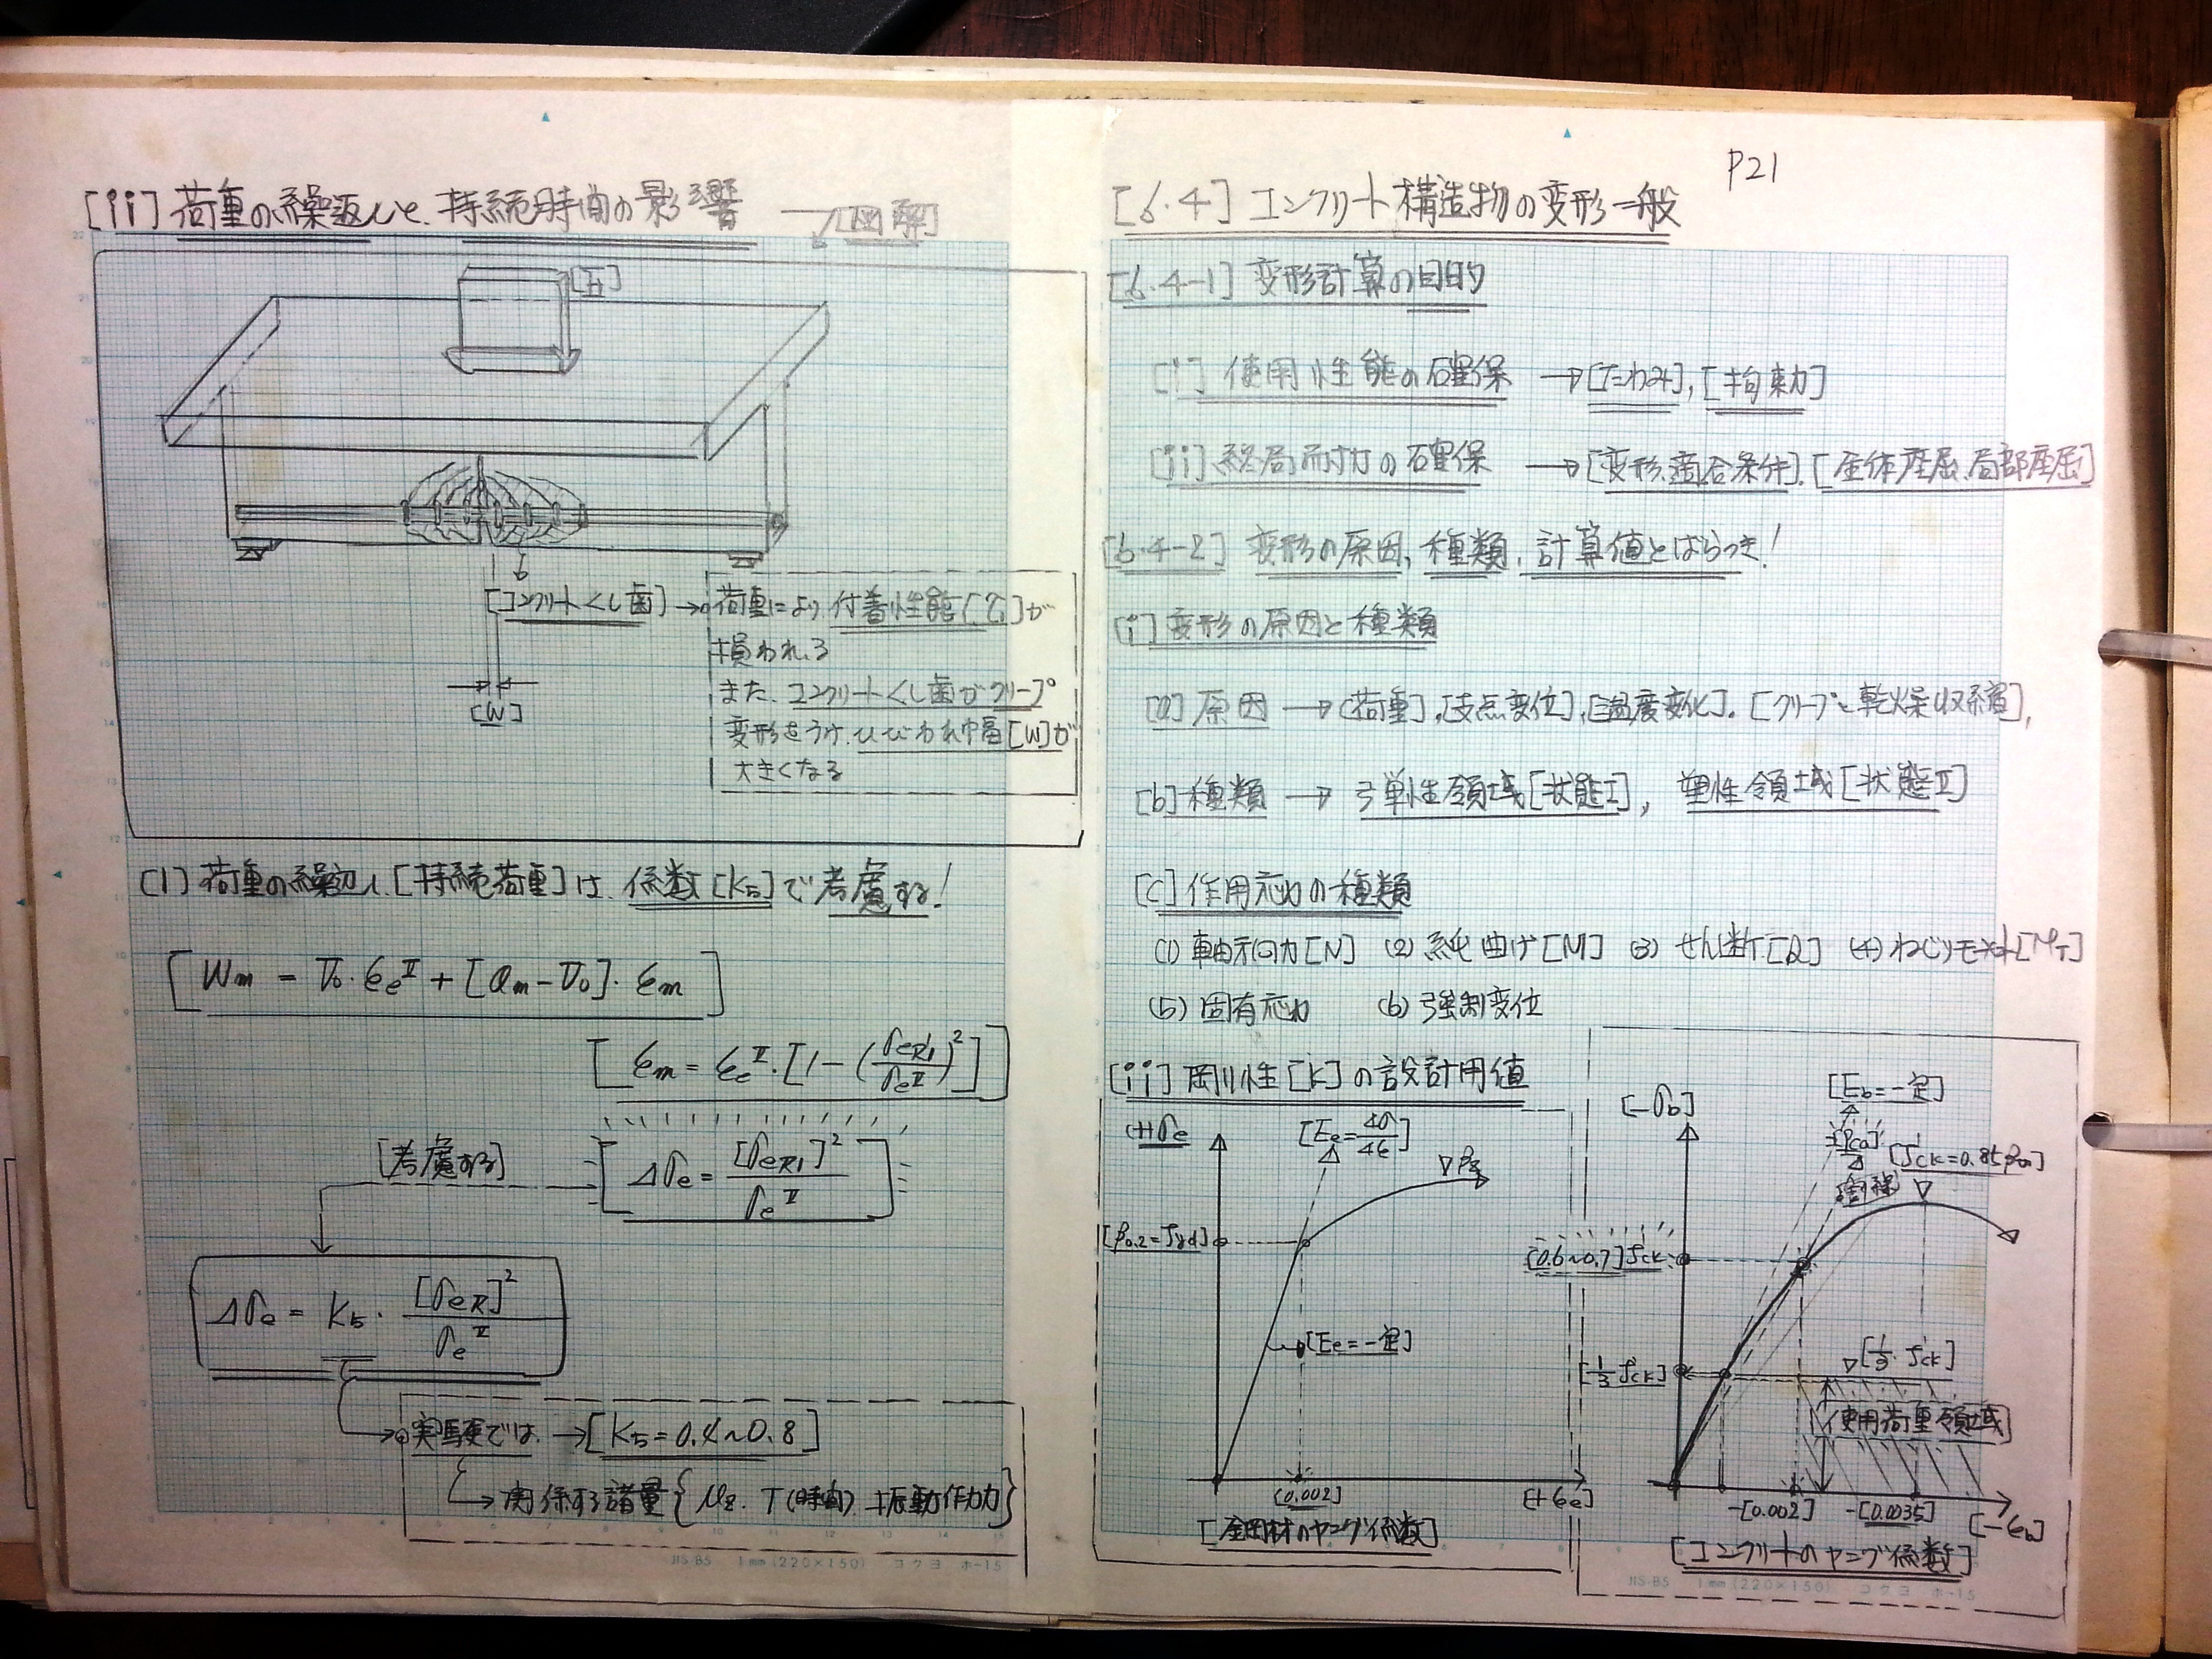 [ii] 荷重の繰返しと、持続時間の影響 → [図解]
[コンクリートくし歯] → 荷重により付着性能[τ1]が
損われる
また、コンクリートくし歯がクリープ
変形をうけ、ひびわれ巾幅[W]が
大きくなる
[W]
(1) 荷重の繰返し、[持続荷重]は、係数[K5]で考慮する!
[Wm = V0・εe^II + [am-V0]・εm]
[εm = εe^II・[1-(σeR1/σe^II)^2]]
[考慮する]
[Δσe = [σeR1]^2/σe^II]
Δσe = K5・[σeR]^2/σe^II
実験では、→ [K5=0.4~0.8]
→ 関係する諸量{μz、T(時間)、振動作用力}
JIS B5 1mm (220×150) コクヨ ホ-15
P21
[6.4] コンクリート構造物の変形一般
[6.4-1] 変形計算の目的
[i] 使用性能の確保 → [たわみ], [拘束力]
[ii] 終局耐力の確保 → [変形適合条件], [全体座屈、局部座屈]
[6.4-2] 変形の原因, 種類, 計算値とばらつき!
[i] 変形の原因と種類
[a] 原因 → [荷重], [支点変位], [温度変化], [クリープと乾燥収縮],
[b] 種類 → 弾性領域[状態I], 塑性領域[状態II]
[c] 作用応力の種類
(1) 軸方向力[N] (2) 純曲げ[M] (3) せん断[Q] (4) ねじりモーメント[MT]
(5) 固有応力 (6) 強制変位
[ii] 剛性[k]の設計用値
(+)σe
[Ee=Δσ/Δε]
▽βz
[β0.2=fyd]
[Ee=一定]
[0.002]
[+εe]
[鋼材のヤング係数]
[-σb]
[Eb=一定]
[f'ck=0.85βcn]
割線
[0.6~0.7]f'ck
[1/3 f'ck]
▽[1/3・f'ck]
使用荷重領域
-[0.002]
-[0.0035]
[-εb]
[コンクリートのヤング係数]
JIS B5 1mm (220×150) コクヨ ホ-15